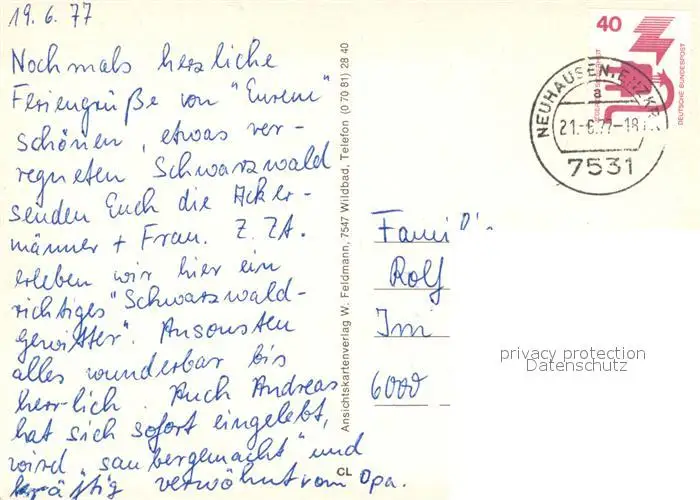 19.6.77
Nochmals herzliche
Feriengrüße von "Eurem"
schönen, etwas ver-
regneten Schwarzwald
senden Euch die Acker-
männer + Frau. Z. Zt.
erleben wir hier ein
richtiges "Schwarzwald-
gewitter". Ansonsten
alles wunderbar bis
herrlich. Auch Andreas
hat sich sofort eingelebt,
wird "saubergemacht" und
kräftig verwöhnt vom Opa.
Ansichtskartenverlag W. Feldmann, 7547 Wildbad, Telefon (0 70 81) 28 40
CL
40
DEUTSCHE BUNDESPOST
NEUHAUSEN, ENZKR
a
21.-6.77-18
7531
Fami
Rolf
Im
6000
privacy protection
Datenschutz